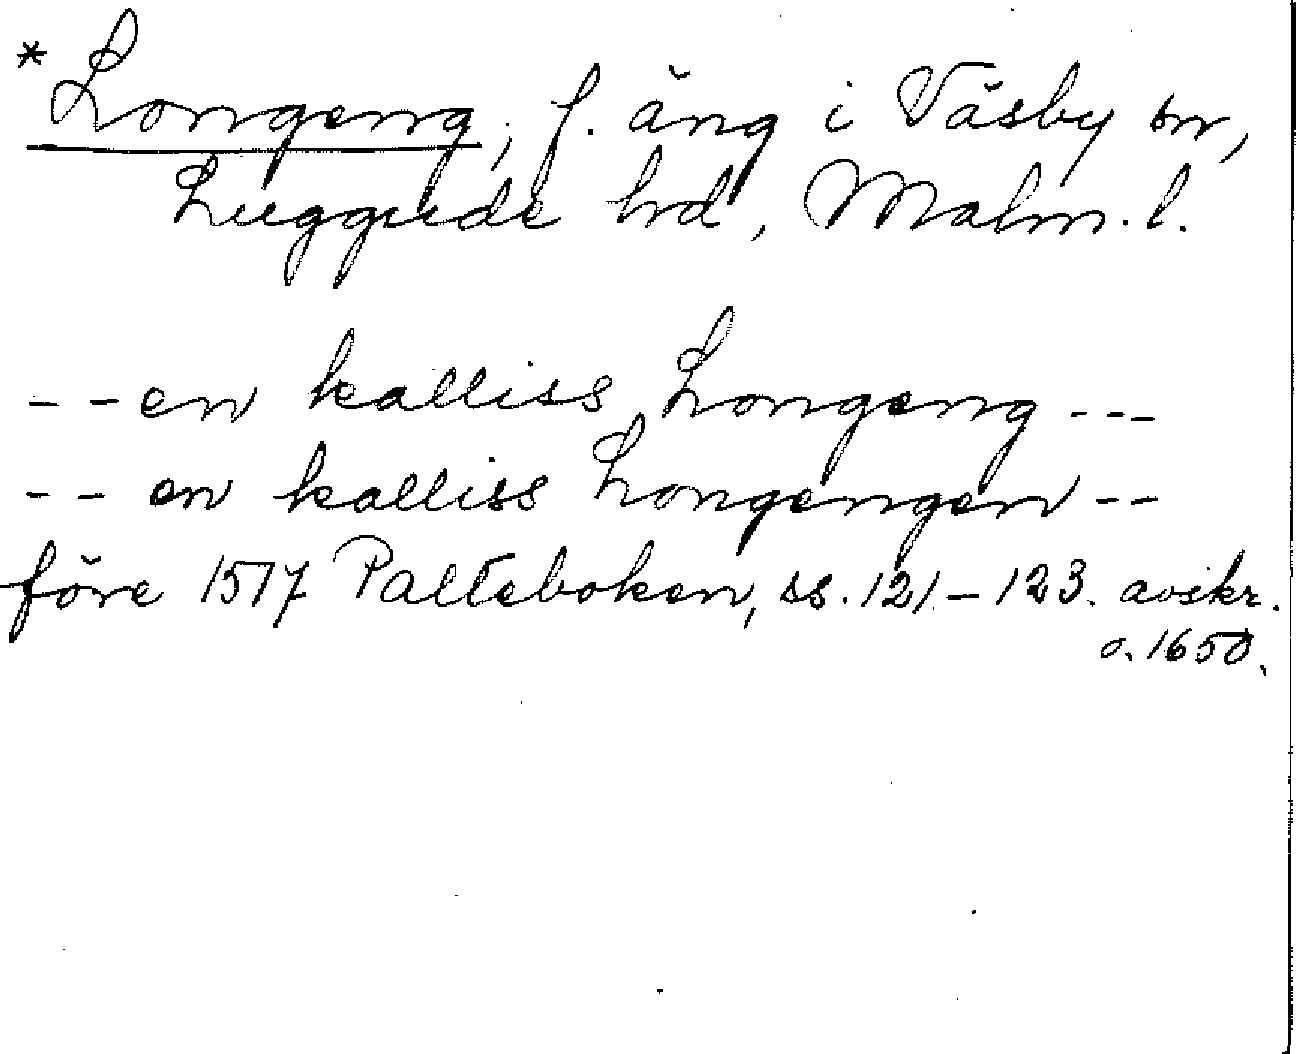 * Longeng, f. äng i Väsby sn,
Luggude hd, Malm. l.
-- en kalliss Longeng ---
-- en kalliss Longengen --
före 1517 Palteboken, ss. 121-123. avskr.
o. 1650.